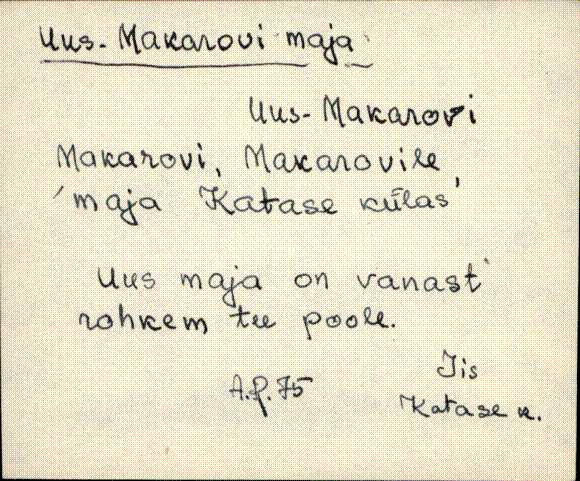 Uus-Makarovi maja
Uus-Makarovi
Makarovi, Makarovile
'maja Katase külas'
Uus maja on vanast
rohkem tee poole.
A.P. 75
Jis
Katase k.